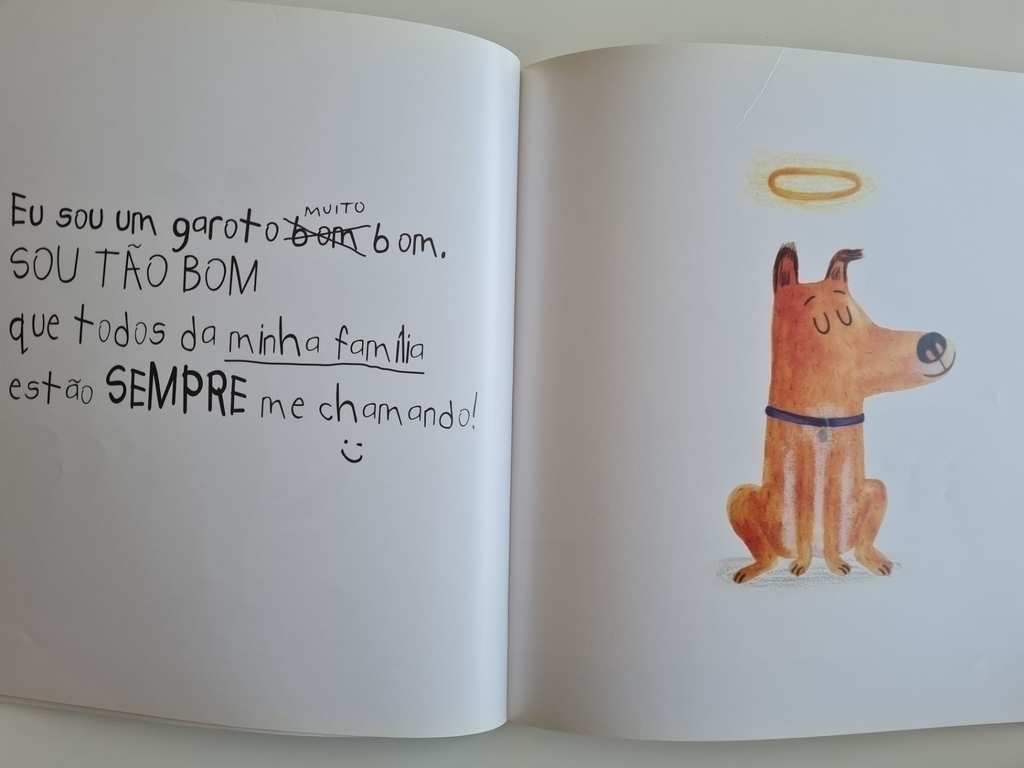 MUITO
Eu sou um garoto bom bom.
SOU TÃO BOM
que todos da minha família
estão SEMPRE me chamando!